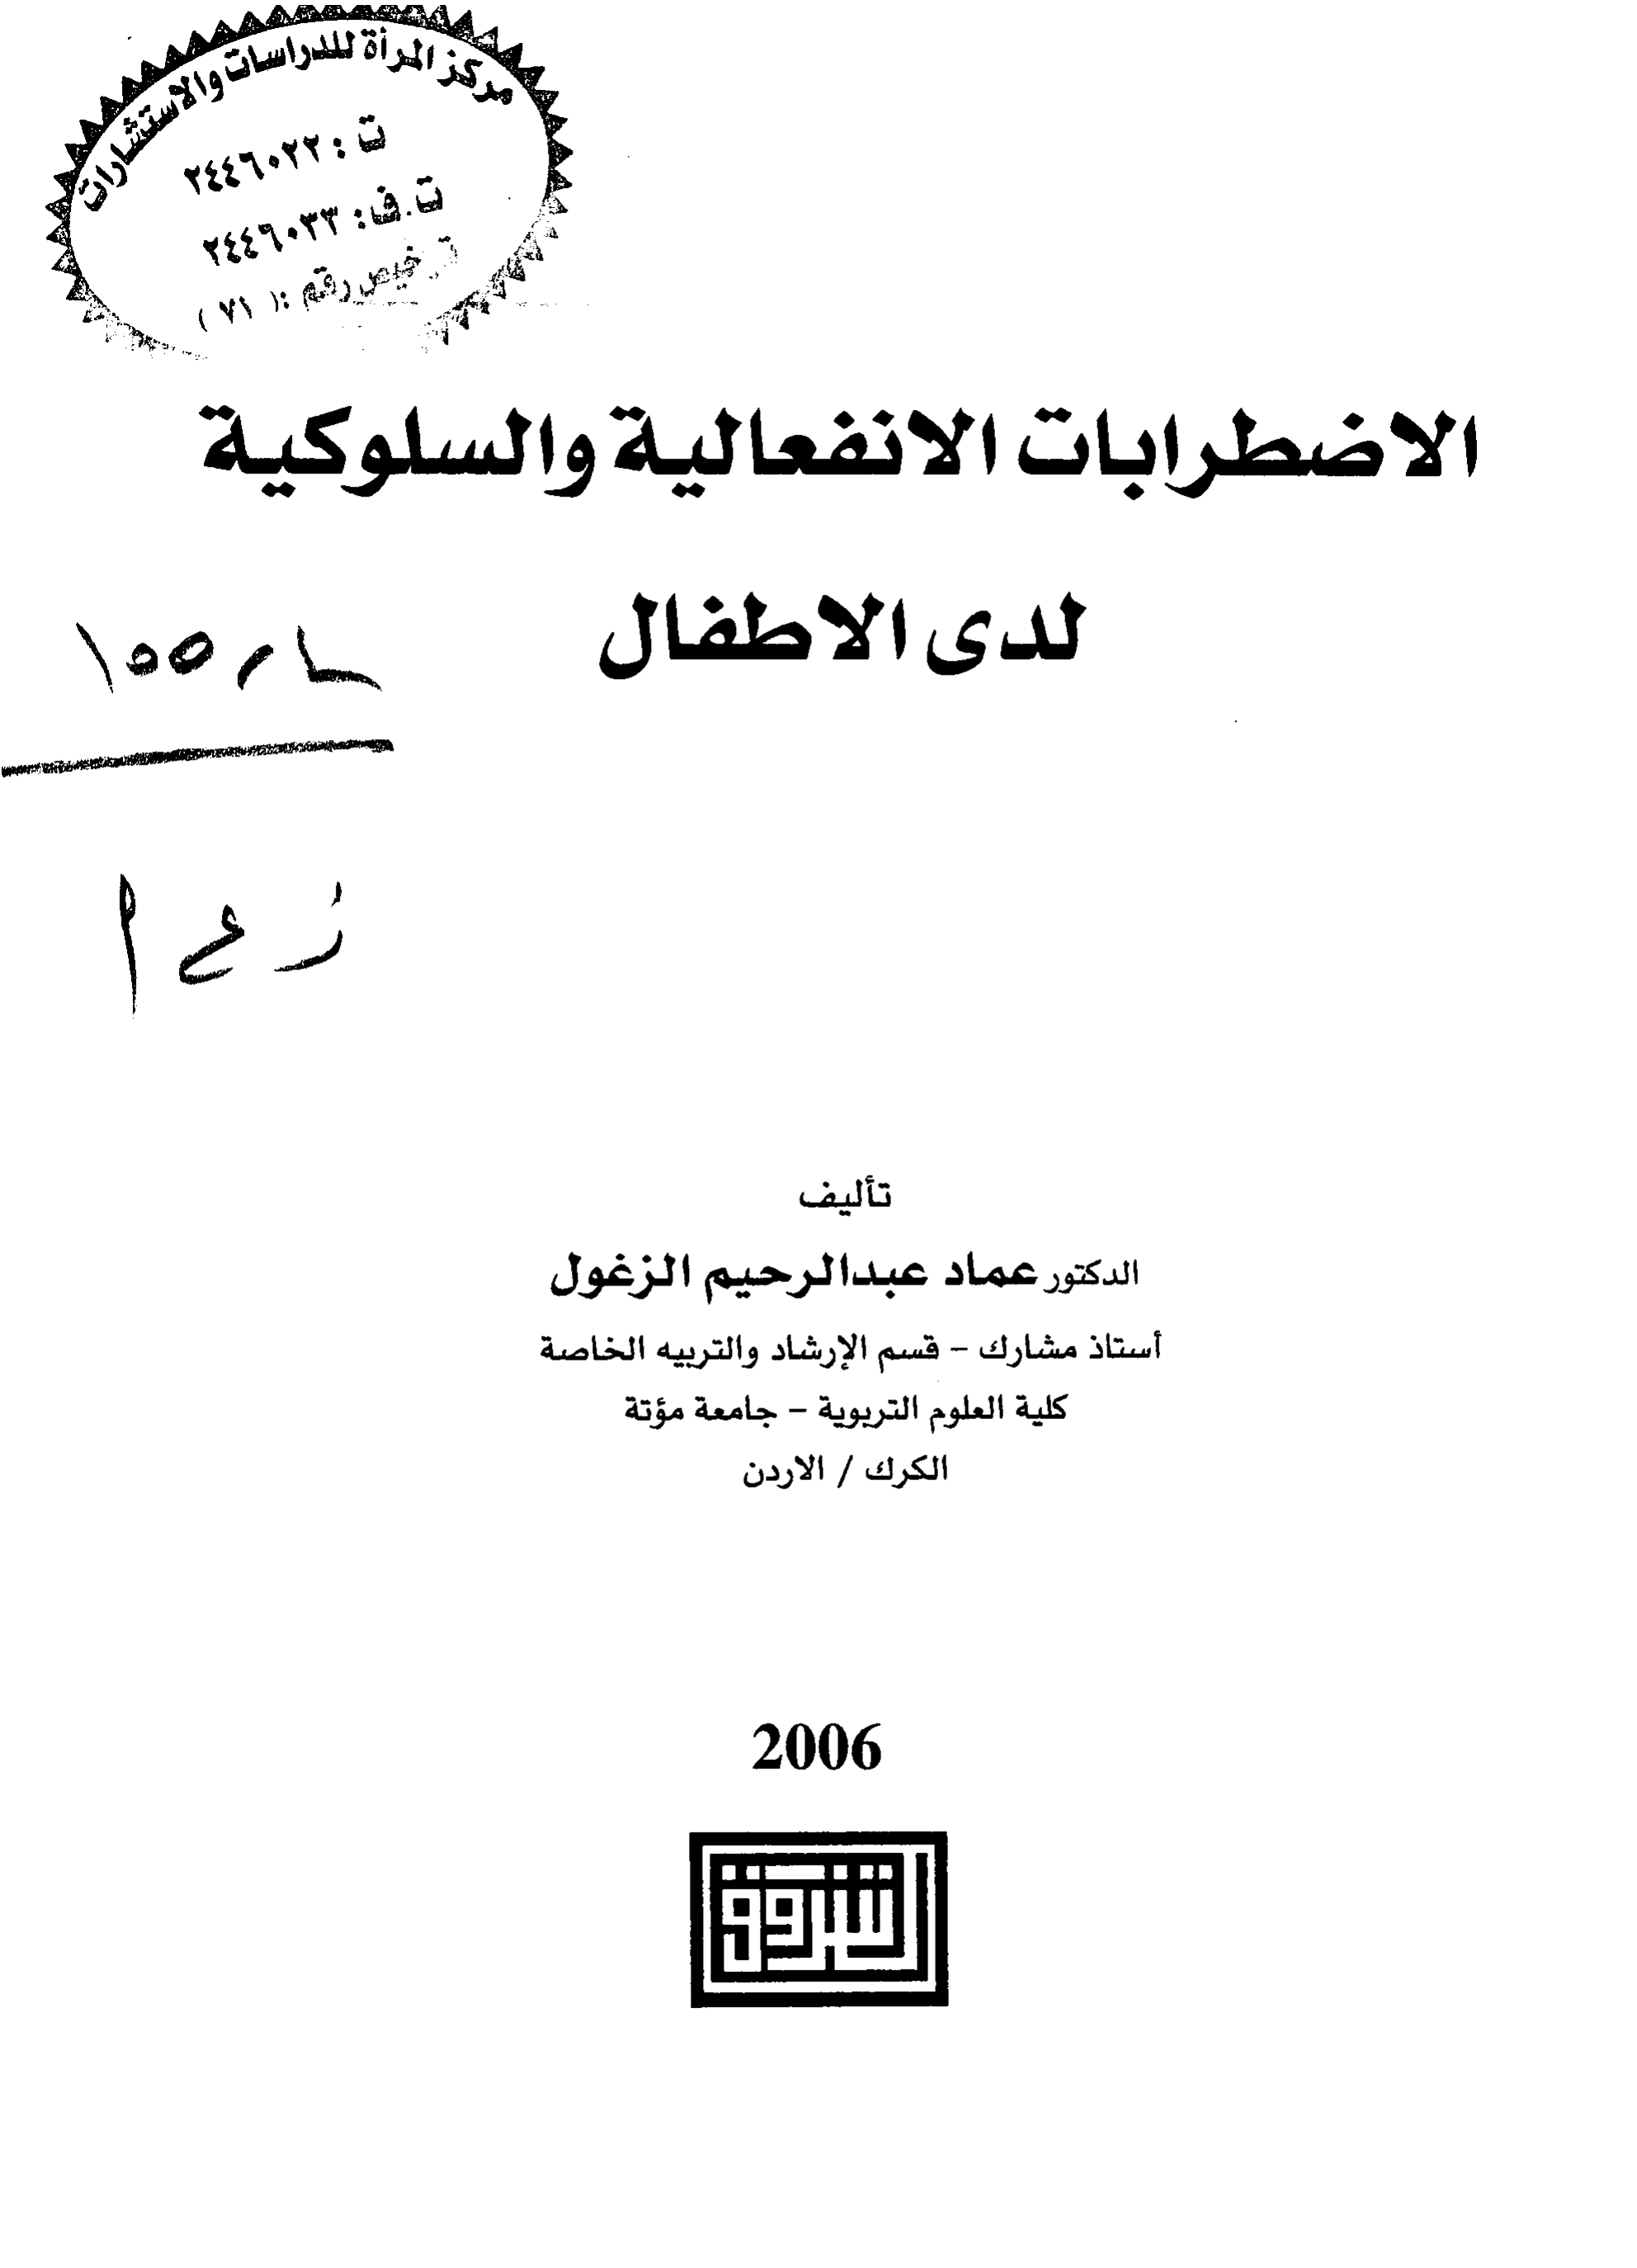 مركز المرأة للدراسات والاستشارات
ت : ٢٤٤٦٠٢٢
ت.ف: ٢٤٤٦٠٣٣
ترخيص رقم :( ٧١ )
الاضطرابات الانفعالية والسلوكية
لدى الاطفال
تأليف
الدكتور عماد عبدالرحيم الزغول
أستاذ مشارك - قسم الإرشاد والتربيه الخاصة
كلية العلوم التربوية - جامعة مؤتة
الكرك / الاردن
2006
الشروق